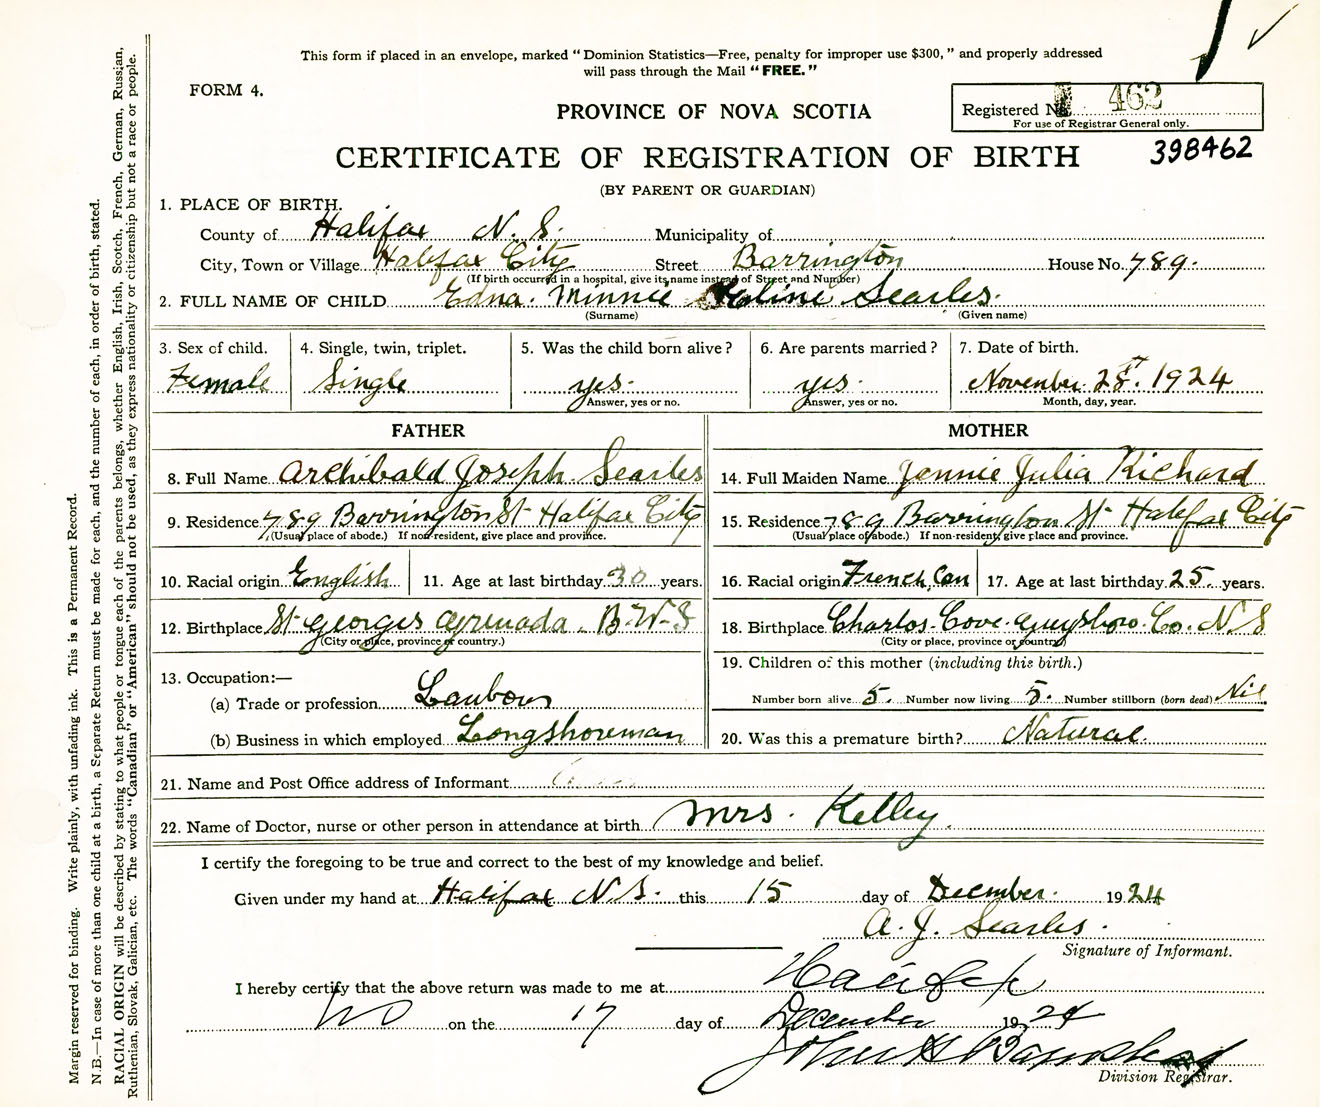 This form if placed in an envelope, marked "Dominion Statistics—Free, penalty for improper use $300," and properly addressed
will pass through the Mail "FREE."
FORM 4.
PROVINCE OF NOVA SCOTIA
Registered No. 462
For use of Registrar General only.
398462
CERTIFICATE OF REGISTRATION OF BIRTH
(BY PARENT OR GUARDIAN)
1. PLACE OF BIRTH.
County of Halifax N. S. Municipality of
City, Town or Village Halifax City Street Barrington House No. 789.
(If birth occurred in a hospital, give its name instead of Street and Number)
2. FULL NAME OF CHILD Edna. Minnie Searles.
(Surname) (Given name)
3. Sex of child. 4. Single, twin, triplet. 5. Was the child born alive? 6. Are parents married? 7. Date of birth.
Female Single yes. yes. November. 28. 1924
Answer, yes or no. Answer, yes or no. Month, day, year.
FATHER MOTHER
8. Full Name Archibald Joseph Searles 14. Full Maiden Name Jennie Julia Richard
9. Residence 789 Barrington St Halifax City 15. Residence 789 Barrington St Halifax City
(Usual place of abode.) If non-resident, give place and province. (Usual place of abode.) If non-resident, give place and province.
10. Racial origin English 11. Age at last birthday 30 years. 16. Racial origin French, Can 17. Age at last birthday 25 years.
12. Birthplace St Georges Grenada. B. W. I 18. Birthplace Charlos. Cove. Guysboro. Co. N S
(City or place, province or country.) (City or place, province or country)
19. Children of this mother (including this birth.)
13. Occupation:—
(a) Trade or profession Laubour Number born alive 5. Number now living 5. Number stillborn (born dead) Nil
(b) Business in which employed Longshoreman 20. Was this a premature birth? Natural.
21. Name and Post Office address of Informant
22. Name of Doctor, nurse or other person in attendance at birth Mrs. Kelley.
I certify the foregoing to be true and correct to the best of my knowledge and belief.
Given under my hand at Halifax N.S. this 15 day of December. 1924
A. J. Searles.
Signature of Informant.
I hereby certify that the above return was made to me at Halifax
NS on the 17 day of December 1924
John
Division Registrar.
Margin reserved for binding. Write plainly, with unfading ink. This is a Permanent Record.
N.B.—In case of more than one child at a birth, a Separate Return must be made for each, and the number of each, in order of birth, stated.
RACIAL ORIGIN will be described by stating to what people or tongue each of the parents belongs, whether English, Irish, Scotch, French, German, Russian,
Ruthenian, Slovak, Galician, etc. The words "Canadian" or "American" should not be used, as they express nationality or citizenship but not a race or people.